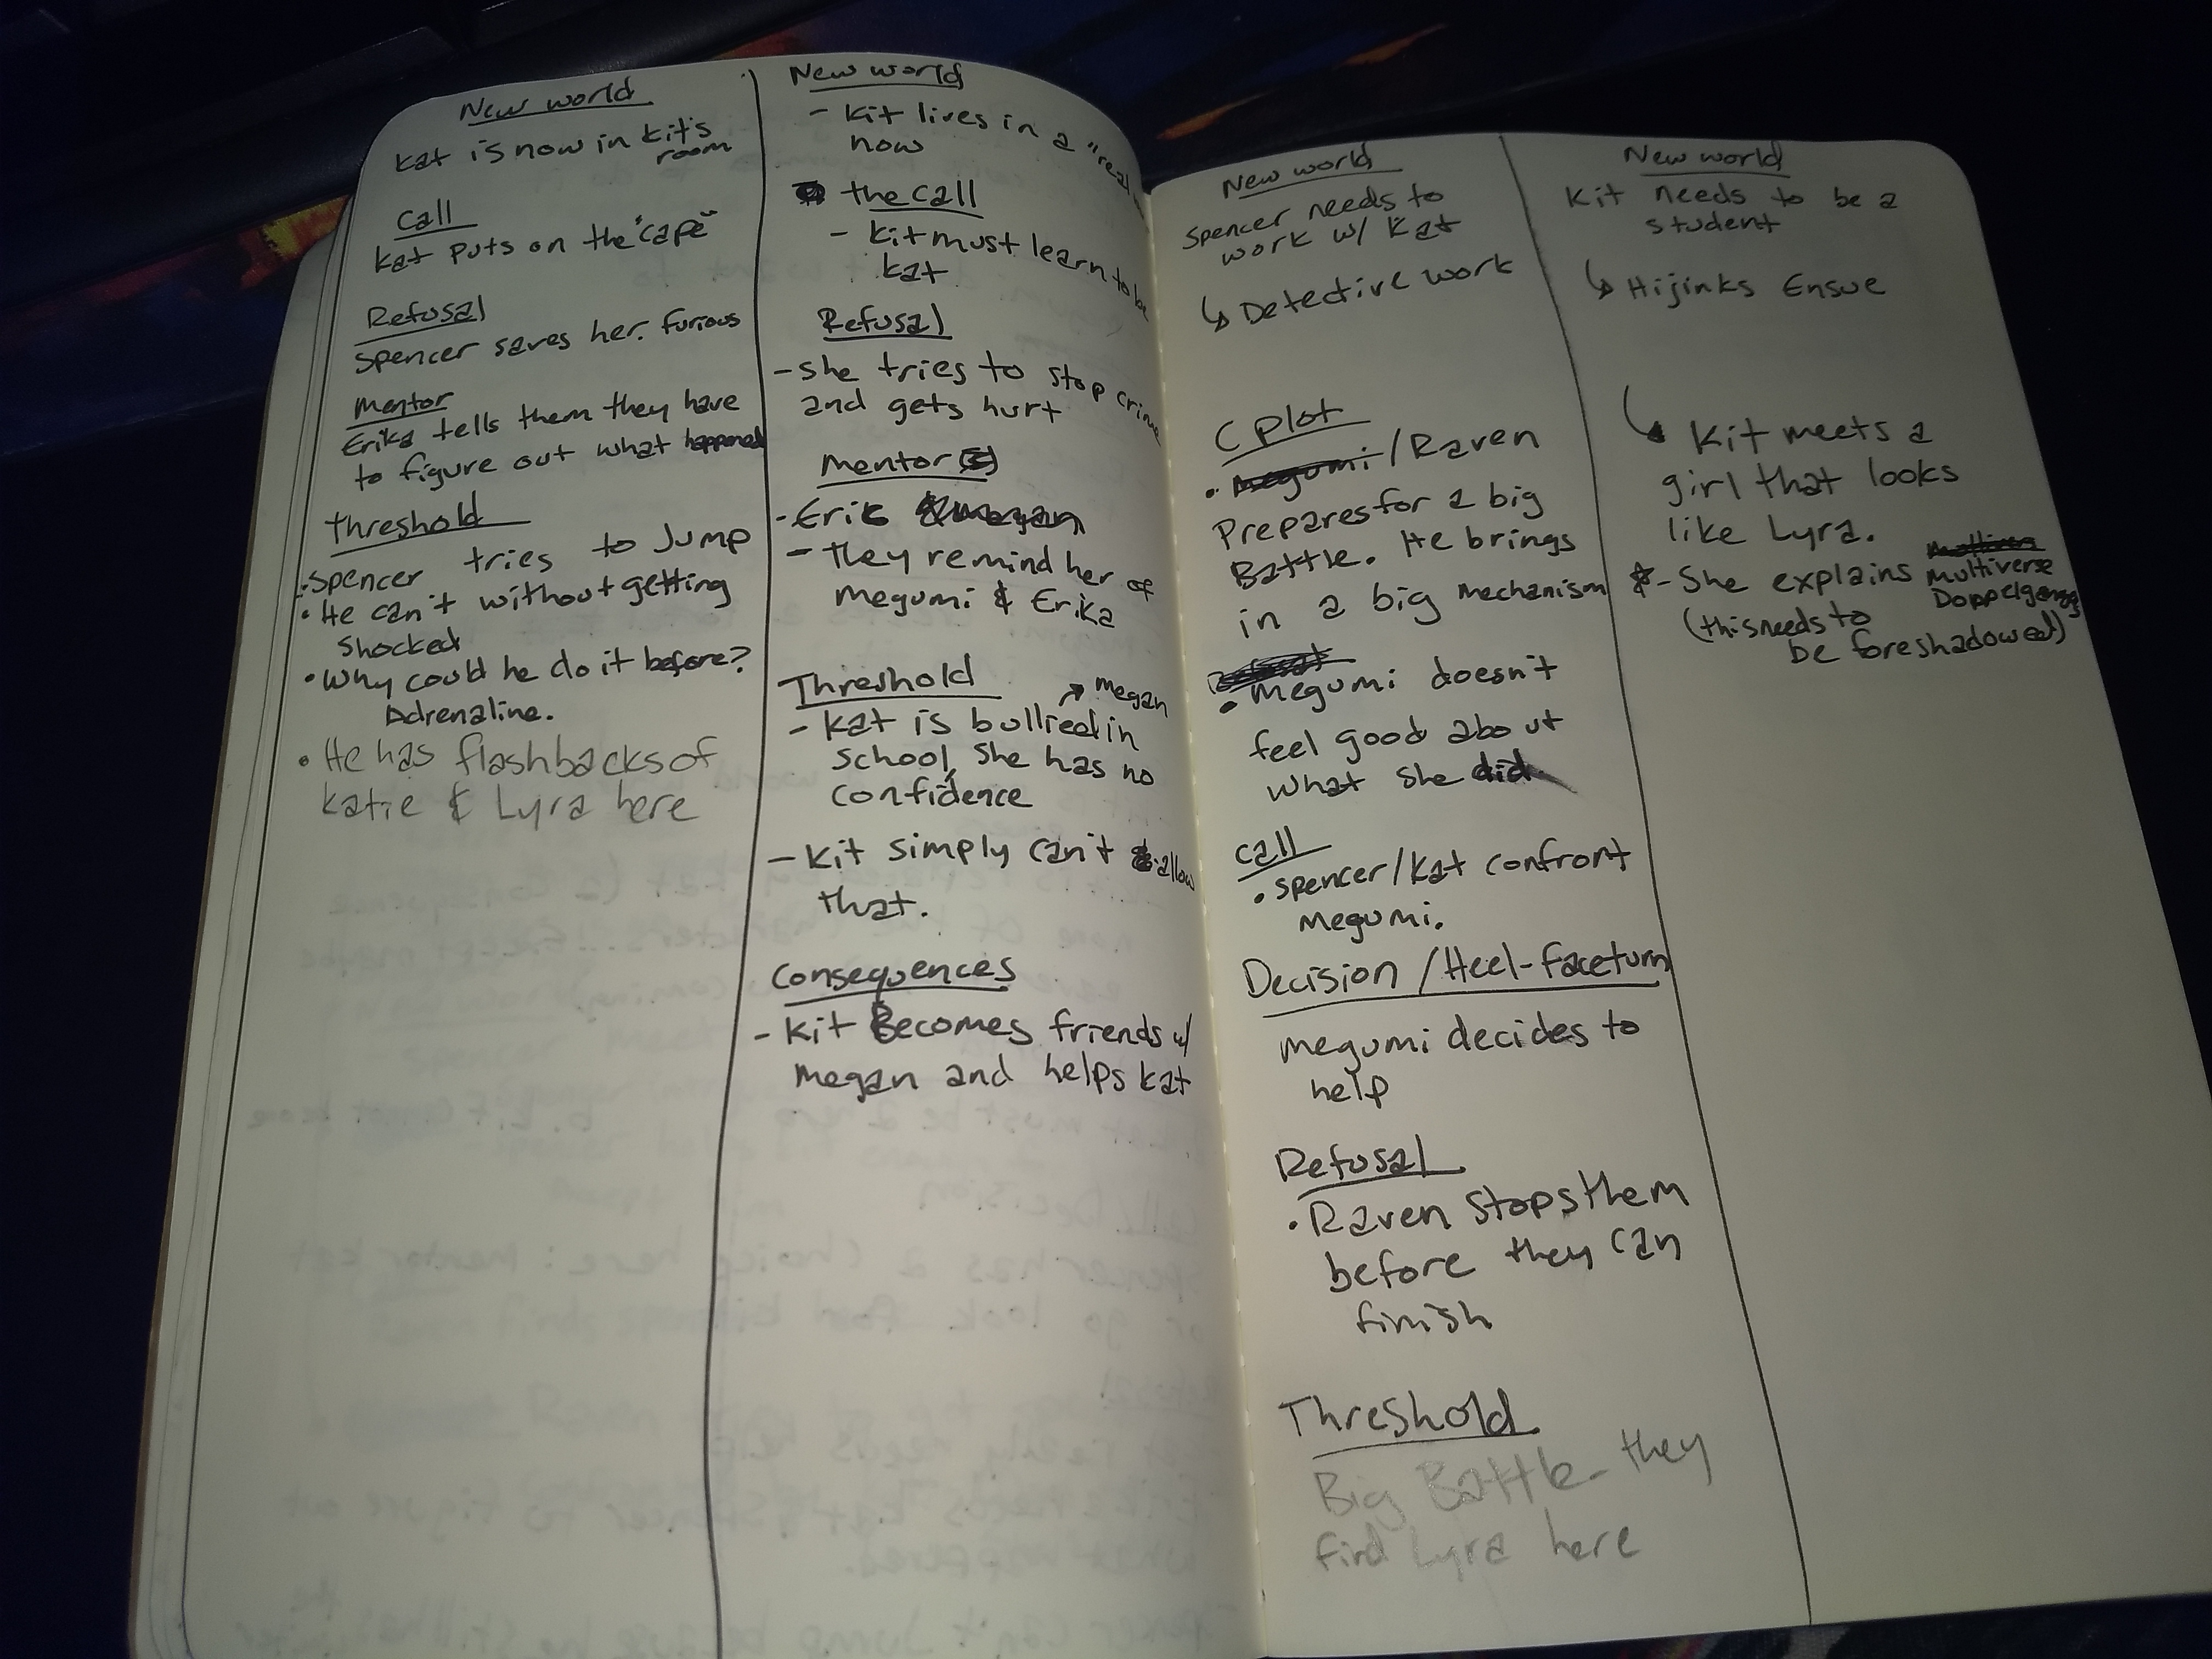 New world
Kat is now in Kit's
room
Call
Kat puts on the "cape"
Refusal
Spencer saves her. Furious
Mentor
Erika tells them they have
to figure out what happened
Threshold
• Spencer tries to Jump
• He can't without getting
shocked
• Why could he do it before?
Adrenaline.
• He has flashbacks of
Katie & Lyra here
New world
- Kit lives in a "real
now
the call
- Kit must learn to be
Kat
Refusal
- she tries to stop crime
and gets hurt
Mentor(s)
- Eric & Megan
- they remind her of
Megumi & Erika
Threshold
→ Megan
- Kat is bullied in
school, she has no
confidence
- Kit simply can't allow
that.
Consequences
- Kit Becomes friends w/
Megan and helps Kat
New world
Spencer needs to
work w/ Kat
↳ Detective work
C plot
• Megumi/Raven
Prepares for a big
Battle. He brings
in a big mechanism
• Megumi doesn't
feel good about
what she did.
Call
• Spencer/Kat confront
Megumi.
Decision / Heel-face turn
Megumi decides to
help
Refusal
• Raven stops them
before they can
finish
Threshold
Big Battle - they
find Lyra here
New world
Kit needs to be a
student
↳ Hijinks Ensue
↳ Kit meets a
girl that looks
like Lyra.
- She explains multiverse
Doppelgang
(this needs to
be foreshadowed)